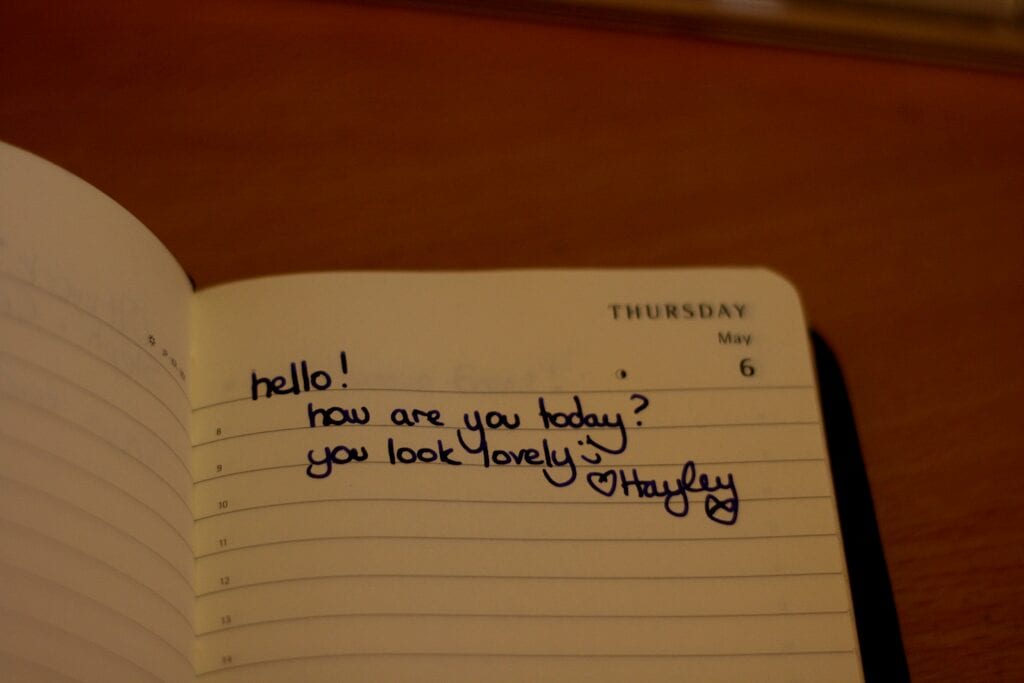 THURSDAY
May
6
hello!
8 how are you today?
9 you look lovely :)
10 ♡Hayley
11
12
13
14